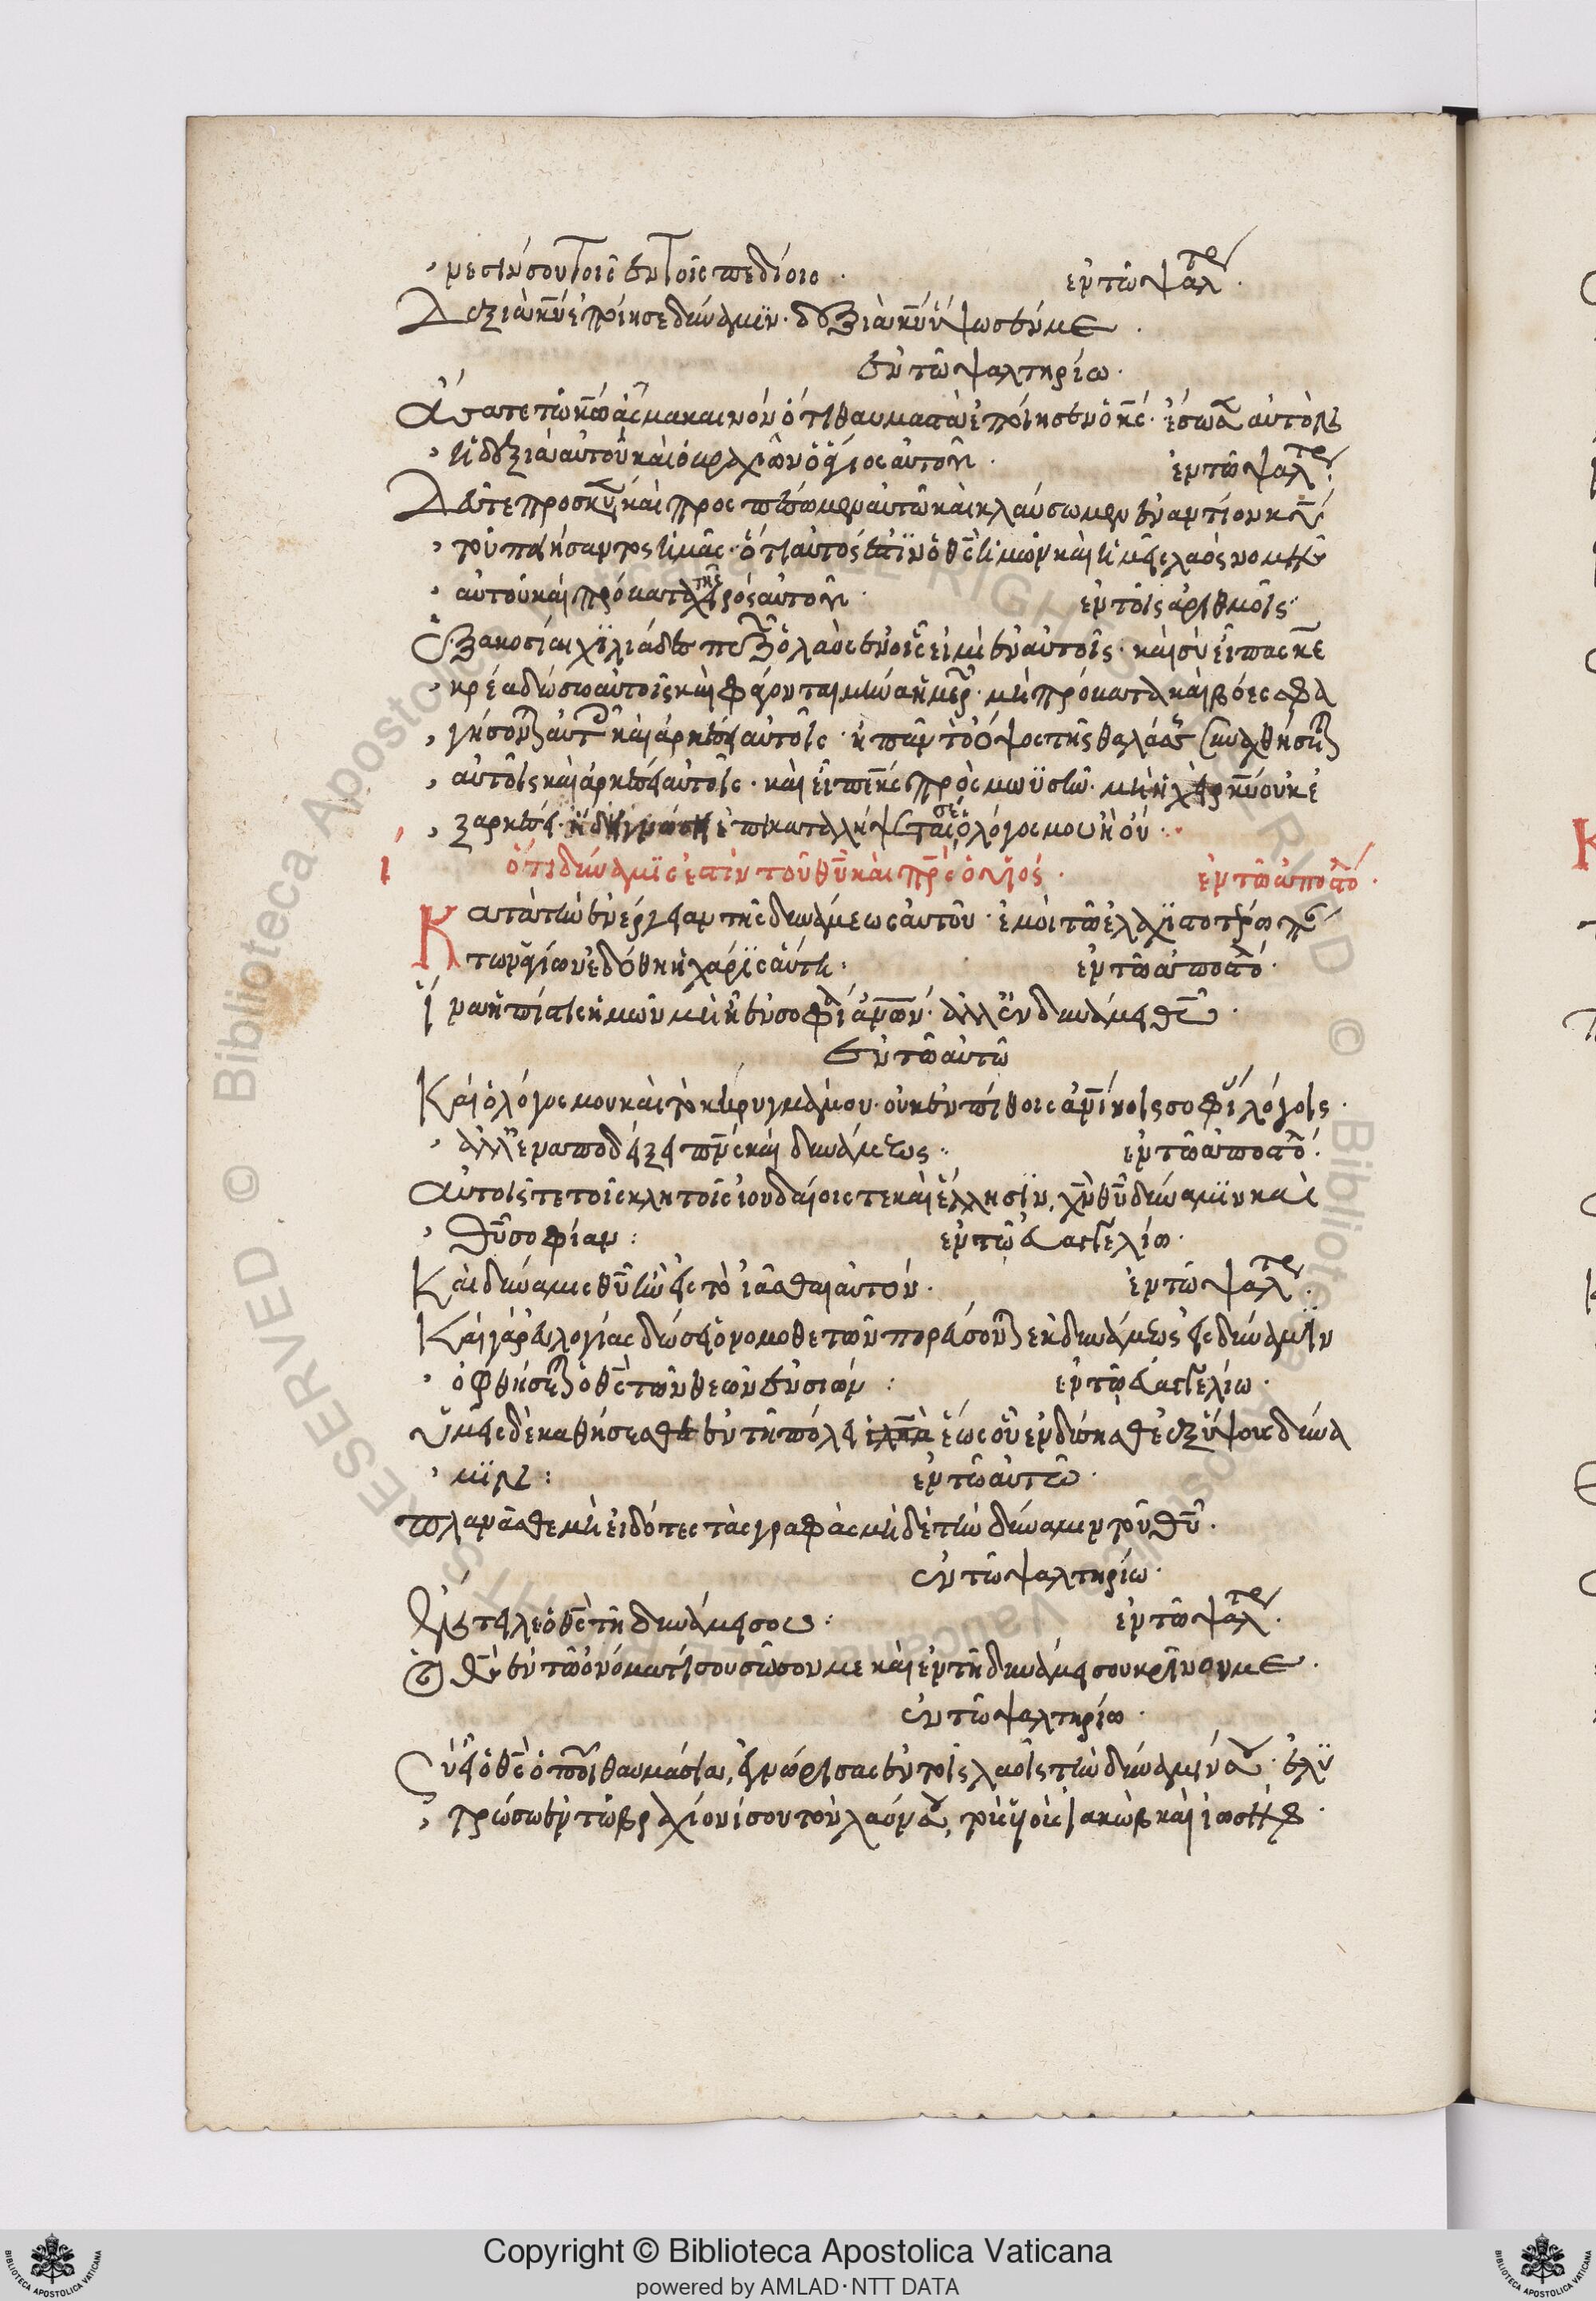 νεσίν σου τοῖς ἐν τοῖς πεδίοις · ἐν τῶ ψαλτρ
Δεξιὰ κυ ἐποίησε δύναμιν · δεξιὰ κυ ὕψωσέν με ·
ἐν τῶ ψαλτηρίω ·
Ἄσατε τῶ κω ἆσμα καινὸν ὅτι θαυμαστὰ ἐποίησεν ὁ κς · ἔσωσεν αὐτὸν
ἡ δεξιὰ αὐτοῦ καὶ ὁ βραχίων ὁ ἅγιος αὐτοῦ · ἐν τῶ ψαλτρ
Δεῦτε προσκυ καὶ προσπέσωμεν αὐτῶ καὶ κλαύσωμεν ἐναντίον κυ
τοῦ ποιήσαντος ἡμᾶς · ὅτι αὐτός ἐστιν ὁ θς ἡμῶν καὶ ἡμεῖς λαὸς νομῆς
αὐτοῦ καὶ πρόβατα τῆς χειρὸς αὐτοῦ · ἐν τοῖς ἀριθμοῖς
Ἑξακόσιαι χιλιάδες πεζῶν ὁ λαὸς ἐν οἷς εἰμὶ ἐν αὐτοῖς · καὶ σὺ εἶπας κε
κρέα δώσω αὐτοῖς καὶ φάγονται μῆνα ἡμερ · μὴ πρόβατα καὶ βόες σφα
γήσονται αὐτοῖς καὶ ἀρκέσει αὐτοῖς · ἢ πᾶν τὸ ὄψος τῆς θαλάσσης συναχθήσεται
αὐτοῖς καὶ ἀρκέσει αὐτοῖς · καὶ εἶπε κς πρὸς μωϋσῆν · μὴ ἡ χεὶρ κυ οὐκ ἐ
ξαρκέσει · ἤδη γνώσει εἰ ἐπικαταλήψεταί σε ὁ λόγος μου ἢ οὔ ·
ι ὅτι δύναμις ἐστὶν τοῦ θυ καὶ πρς ὁ υἱός · ἐν τῶ ἀποστό ·
Κατὰ τὴν ἐνέργειαν τῆς δυνάμεως αὐτοῦ · ἐμοὶ τῶ ἐλαχιστοτέρω πάν
των ἁγίων ἐδόθη ἡ χάρις αὕτη : ἐν τῶ ἀποστό ·
Ἵνα ἡ πίστις ἡμῶν μὴ ἦ ἐν σοφία ἀνων · ἀλλ' ἐν δυνάμει θυ ·
ἐν τῶ αὐτῶ
Καὶ ὁ λόγος μου καὶ τὸ κήρυγμά μου · οὐκ ἐν πειθοῖς ἀνίνοις σοφί λόγοις ·
ἀλλ' ἐν ἀποδείξει πνς καὶ δυνάμεως : ἐν τῶ ἀποστό
Αὐτοῖς τε τοῖς κλητοῖς ἰουδαίοις τε καὶ ἕλλησιν, χν θυ δύναμιν καὶ
θυ σοφίαν : ἐν τῶ εὐαγγελίω ·
Καὶ δύναμις θυ ἦν εἰς τὸ ἰᾶσθαι αὐτόν · ἐν τῶ ψαλτρ ·
Καὶ γὰρ εὐλογίας δώσει ὁ νομοθετῶν πορεύσονται ἐκ δυνάμεως εἰς δύναμιν
ὀφθήσεται ὁ θς τῶν θεῶν ἐν σιών : ἐν τῶ εὐαγγελίω ·
Ὑμεῖς δὲ καθήσεσθε ἐν τῆ πόλει ιλημ ἕως οὗ ἐνδύσησθε ἐξ ὕψους δύνα
μιν : ἐν τῶ αὐτῶ ·
πλανᾶσθε μὴ εἰδότες τὰς γραφὰς μηδὲ τὴν δύναμιν τοῦ θυ ·
ἐν τῶ ψαλτηρίω ·
Ἔντειλε ὁ θς τῆ δυνάμει σου : ἐν τῶ ψαλτρ ·
Ὁ θς ἐν τῶ ὀνόματί σου σῶσον με καὶ ἐν τῆ δυνάμει σου κρῖνον με ·
ἐν τῶ ψαλτηρίω ·
Σὺ εἶ ὁ θς ὁ ποιῶν θαυμάσια, ἐγνώρισας ἐν τοῖς λαοῖς τὴν δύναμίν σου · ἐλυ
τρώσω ἐν τῶ βραχίονί σου τὸν λαόν σου, τοὺς υἱοὺς ἰακὼβ καὶ ἰωσήφ ·
Copyright © Biblioteca Apostolica Vaticana
powered by AMLAD·NTT DATA